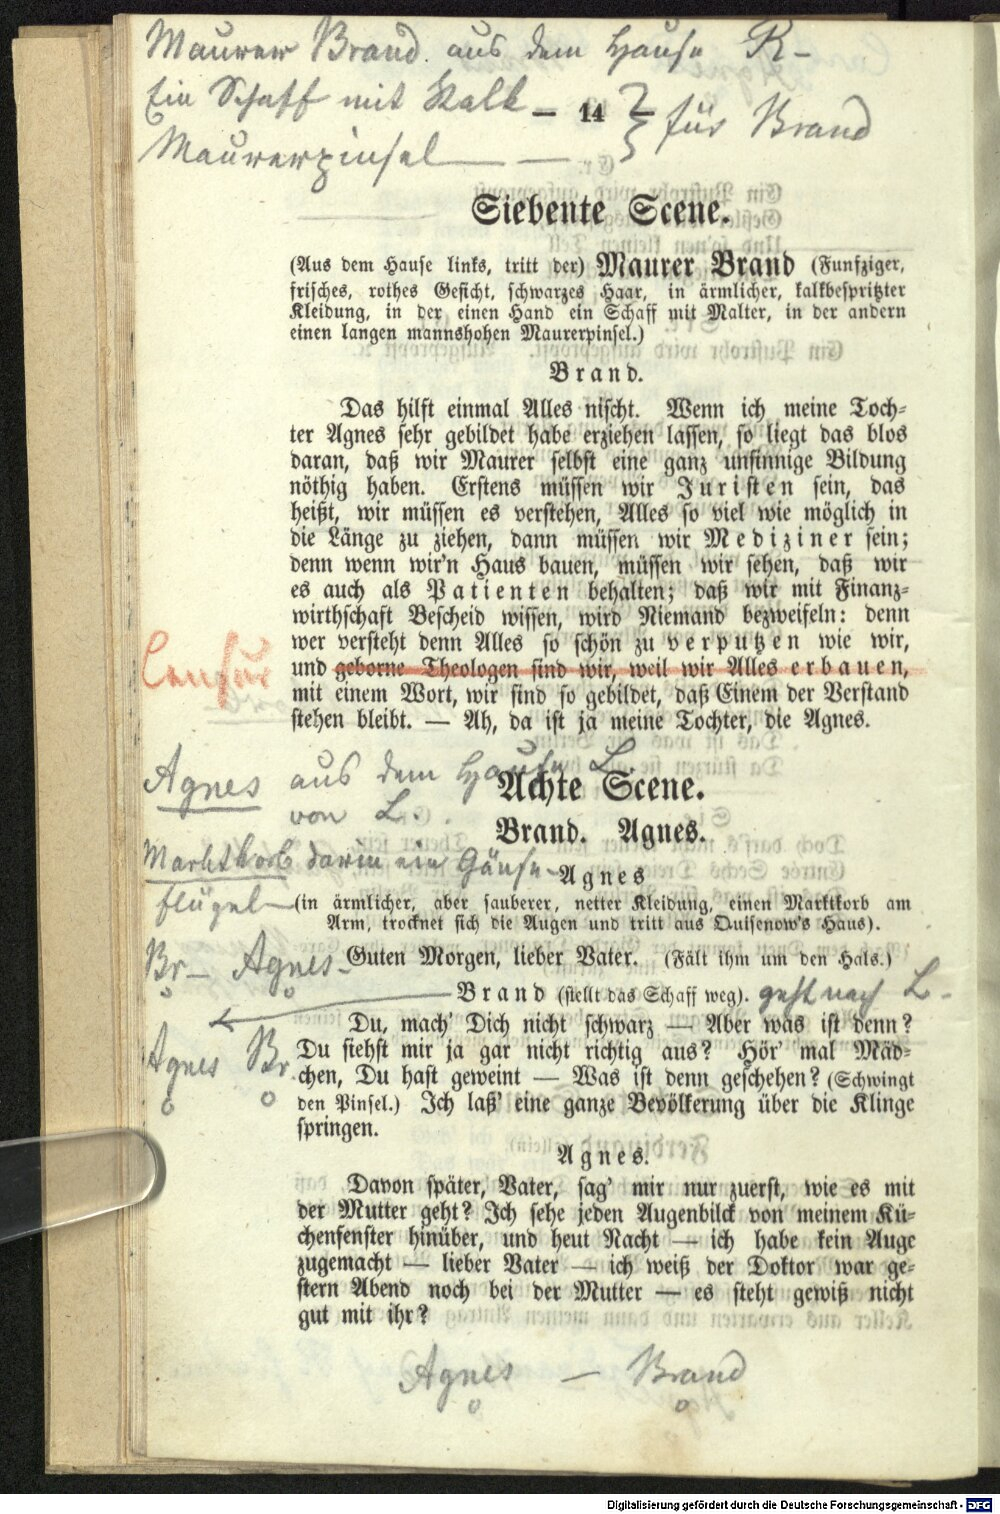 Maurer Brand. aus dem Hause R-
Ein Schaff mit Kalk
— 14 —
} für Brand
Maurerpinsel — —
Siebente Scene.
(Aus dem Hause links, tritt der) Maurer Brand (Funfziger,
frisches, rothes Gesicht, schwarzes Haar, in ärmlicher, kalkbespritzter
Kleidung, in der einen Hand ein Schaff mit Malter, in der andern
einen langen mannshohen Maurerpinsel.)
Brand.
Das hilft einmal Alles nischt. Wenn ich meine Toch-
ter Agnes sehr gebildet habe erziehen lassen, so liegt das blos
daran, daß wir Maurer selbst eine ganz unsinnige Bildung
nöthig haben. Erstens müssen wir Juristen sein, das
heißt, wir müssen es verstehen, Alles so viel wie möglich in
die Länge zu ziehen, dann müssen wir Mediziner sein;
denn wenn wir'n Haus bauen, müssen wir sehen, daß wir
es auch als Patienten behalten; daß wir mit Finanz-
wirthschaft Bescheid wissen, wird Niemand bezweifeln: denn
wer versteht denn Alles so schön zu verputzen wie wir,
Censur
und geborne Theologen sind wir, weil wir Alles erbauen,
mit einem Wort, wir sind so gebildet, daß Einem der Verstand
stehen bleibt. — Ah, da ist ja meine Tochter, die Agnes.
Agnes aus dem Hause L.
Achte Scene.
von L.
Brand. Agnes.
Marktkorb darin ein Gänse-
flügel
Agnes
(in ärmlicher, aber sauberer, netter Kleidung, einen Marktkorb am
Arm, trocknet sich die Augen und tritt aus Quisenow's Haus).
Br — Agnes -
Guten Morgen, lieber Vater. (Fält ihm um den Hals.)
Brand (stellt das Schaff weg). geht nach L -
Du, mach' Dich nicht schwarz — Aber was ist denn?
Agnes Br.
Du siehst mir ja gar nicht richtig aus? Hör' mal Mäd-
chen, Du hast geweint — Was ist denn geschehen? (Schwingt
den Pinsel.) Ich laß' eine ganze Bevölkerung über die Klinge
springen.
Agnes.
Davon später, Vater, sag' mir nur zuerst, wie es mit
der Mutter geht? Ich sehe jeden Augenbilck von meinem Kü-
chenfenster hinüber, und heut Nacht — ich habe kein Auge
zugemacht — lieber Vater — ich weiß der Doktor war ge-
stern Abend noch bei der Mutter — es steht gewiß nicht
gut mit ihr?
Agnes — Brand
Digitalisierung gefördert durch die Deutsche Forschungsgemeinschaft - DFG